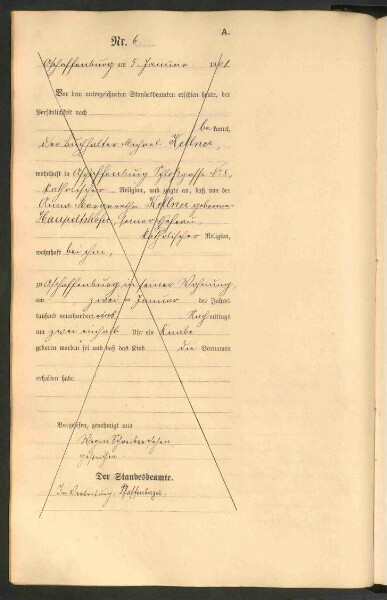 A.
Nr. 6.
Aschaffenburg am 5. Januar 1901.
Vor dem unterzeichneten Standesbeamten erschien heute, der
Persönlichkeit nach
bekannt,
der Buchhalter Michael Kellner,
wohnhaft in Aschaffenburg Schloßgasse No 8,
katholischer Religion, und zeigte an, daß von der
Anna Margaretha Kellner geborene
seiner Ehefrau,
katholischer Religion,
wohnhaft bei ihm,
zu Aschaffenburg in seiner Wohnung,
am zwei Januar des Jahres
tausend neunhundert eins Nachmittags
um zwei einhalb Uhr ein Knabe
geboren worden sei und daß das Kind die Vornamen
erhalten habe.
Vorgelesen, genehmigt und
Wegen Schreibversehen
gestrichen.
Der Standesbeamte.
In Vertretung: